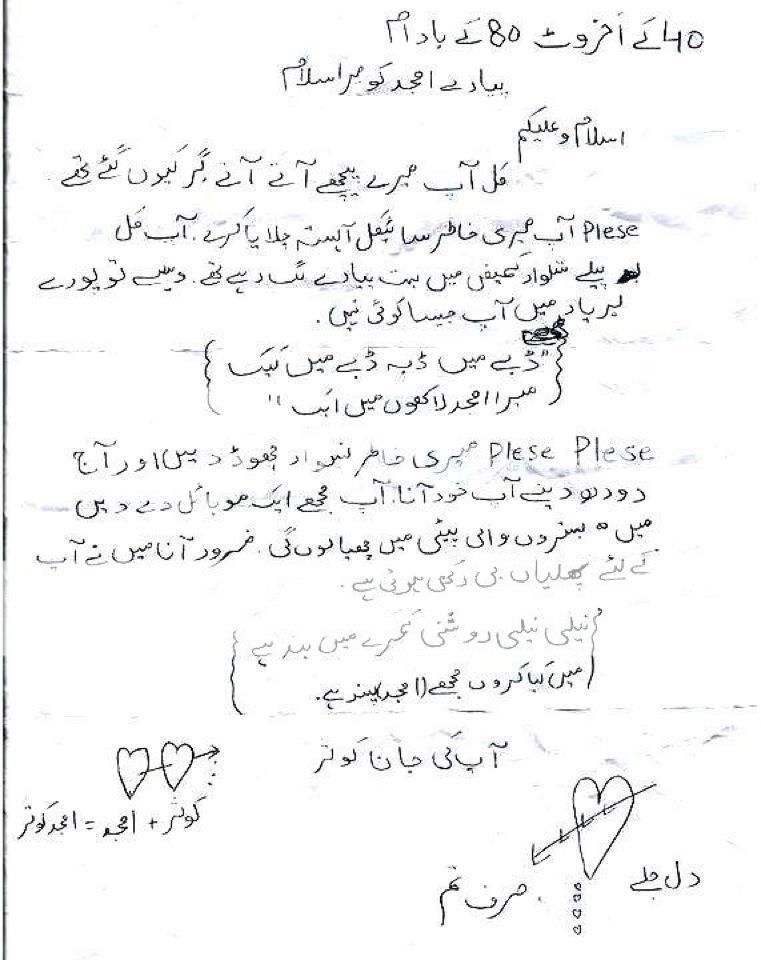 40 کے اخروٹ 80 کے بادام
پیارے امجد کو میرا سلام
اسلام و علیکم
کل آپ میرے پیچھے آتے آتے گر کیوں گئے تھے
Plese آپ میری خاطر سائیکل آہستہ چلایا کرے. آپ کل
پیلے شلوار کمیض میں بہت پیارے لگ رہے تھے. ویسے تو پورے
میں آپ جیسا کوئی نہیں.
"ڈبے میں ڈبہ ڈبے میں کیک
میرا امجد لاکھوں میں ایک"
Plese Plese میری خاطر نسوار چھوڑ دیں اور آج
دودھ دینے آپ خود آنا. آپ مجھے ایک موبائل دے دیں
میں بستروں والی پیٹی میں چھپا لوں گی. ضرور آنا میں نے آپ
کے لئے پھلیاں بھی رکھی ہوئی ہے.
نیلی نیلی روشنی کمرے میں بند ہے
میں کیا کروں مجھے (امجد) پسند ہے.
آپ کی جان کوثر
کوثر + امجد = امجد کوثر
دل جلے
صرف تم